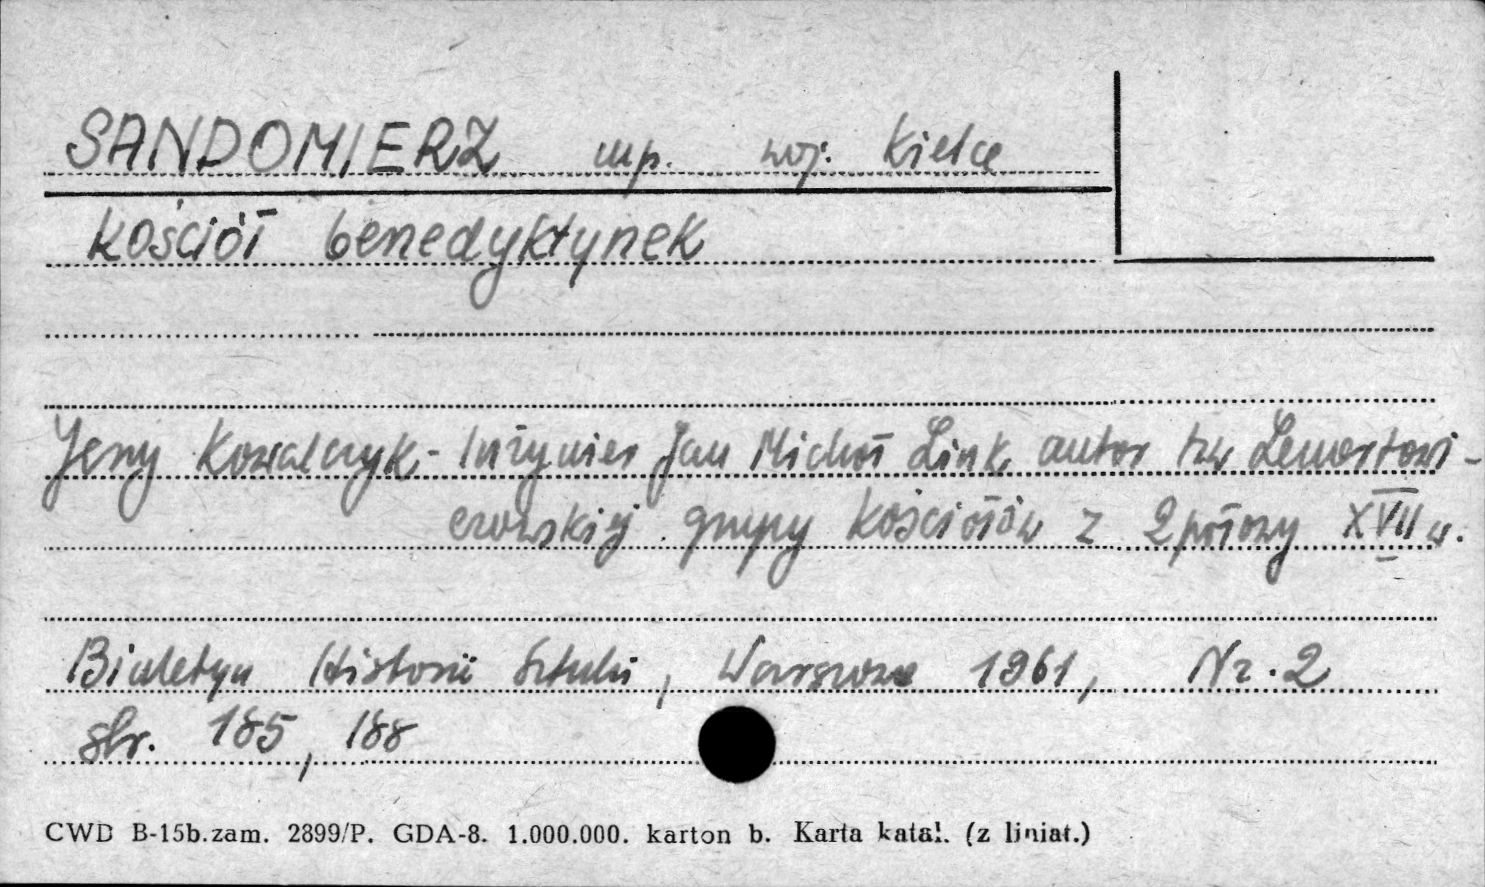 SANDOMIERZ mp. woj. Kielce
kościół benedyktynek
Jerzy Kowalczyk - Inżynier Jan Michał Link autor tzw Lewartowi-
czowskiej grupy kościołów z 2 połowy XVII w.
Biuletyn Historii Sztuki, Warszawa 1961, Nr. 2
str. 185, 188
CWD B-15b.zam. 2899/P. GDA-8. 1.000.000. karton b. Karta katal. (z liniat.)